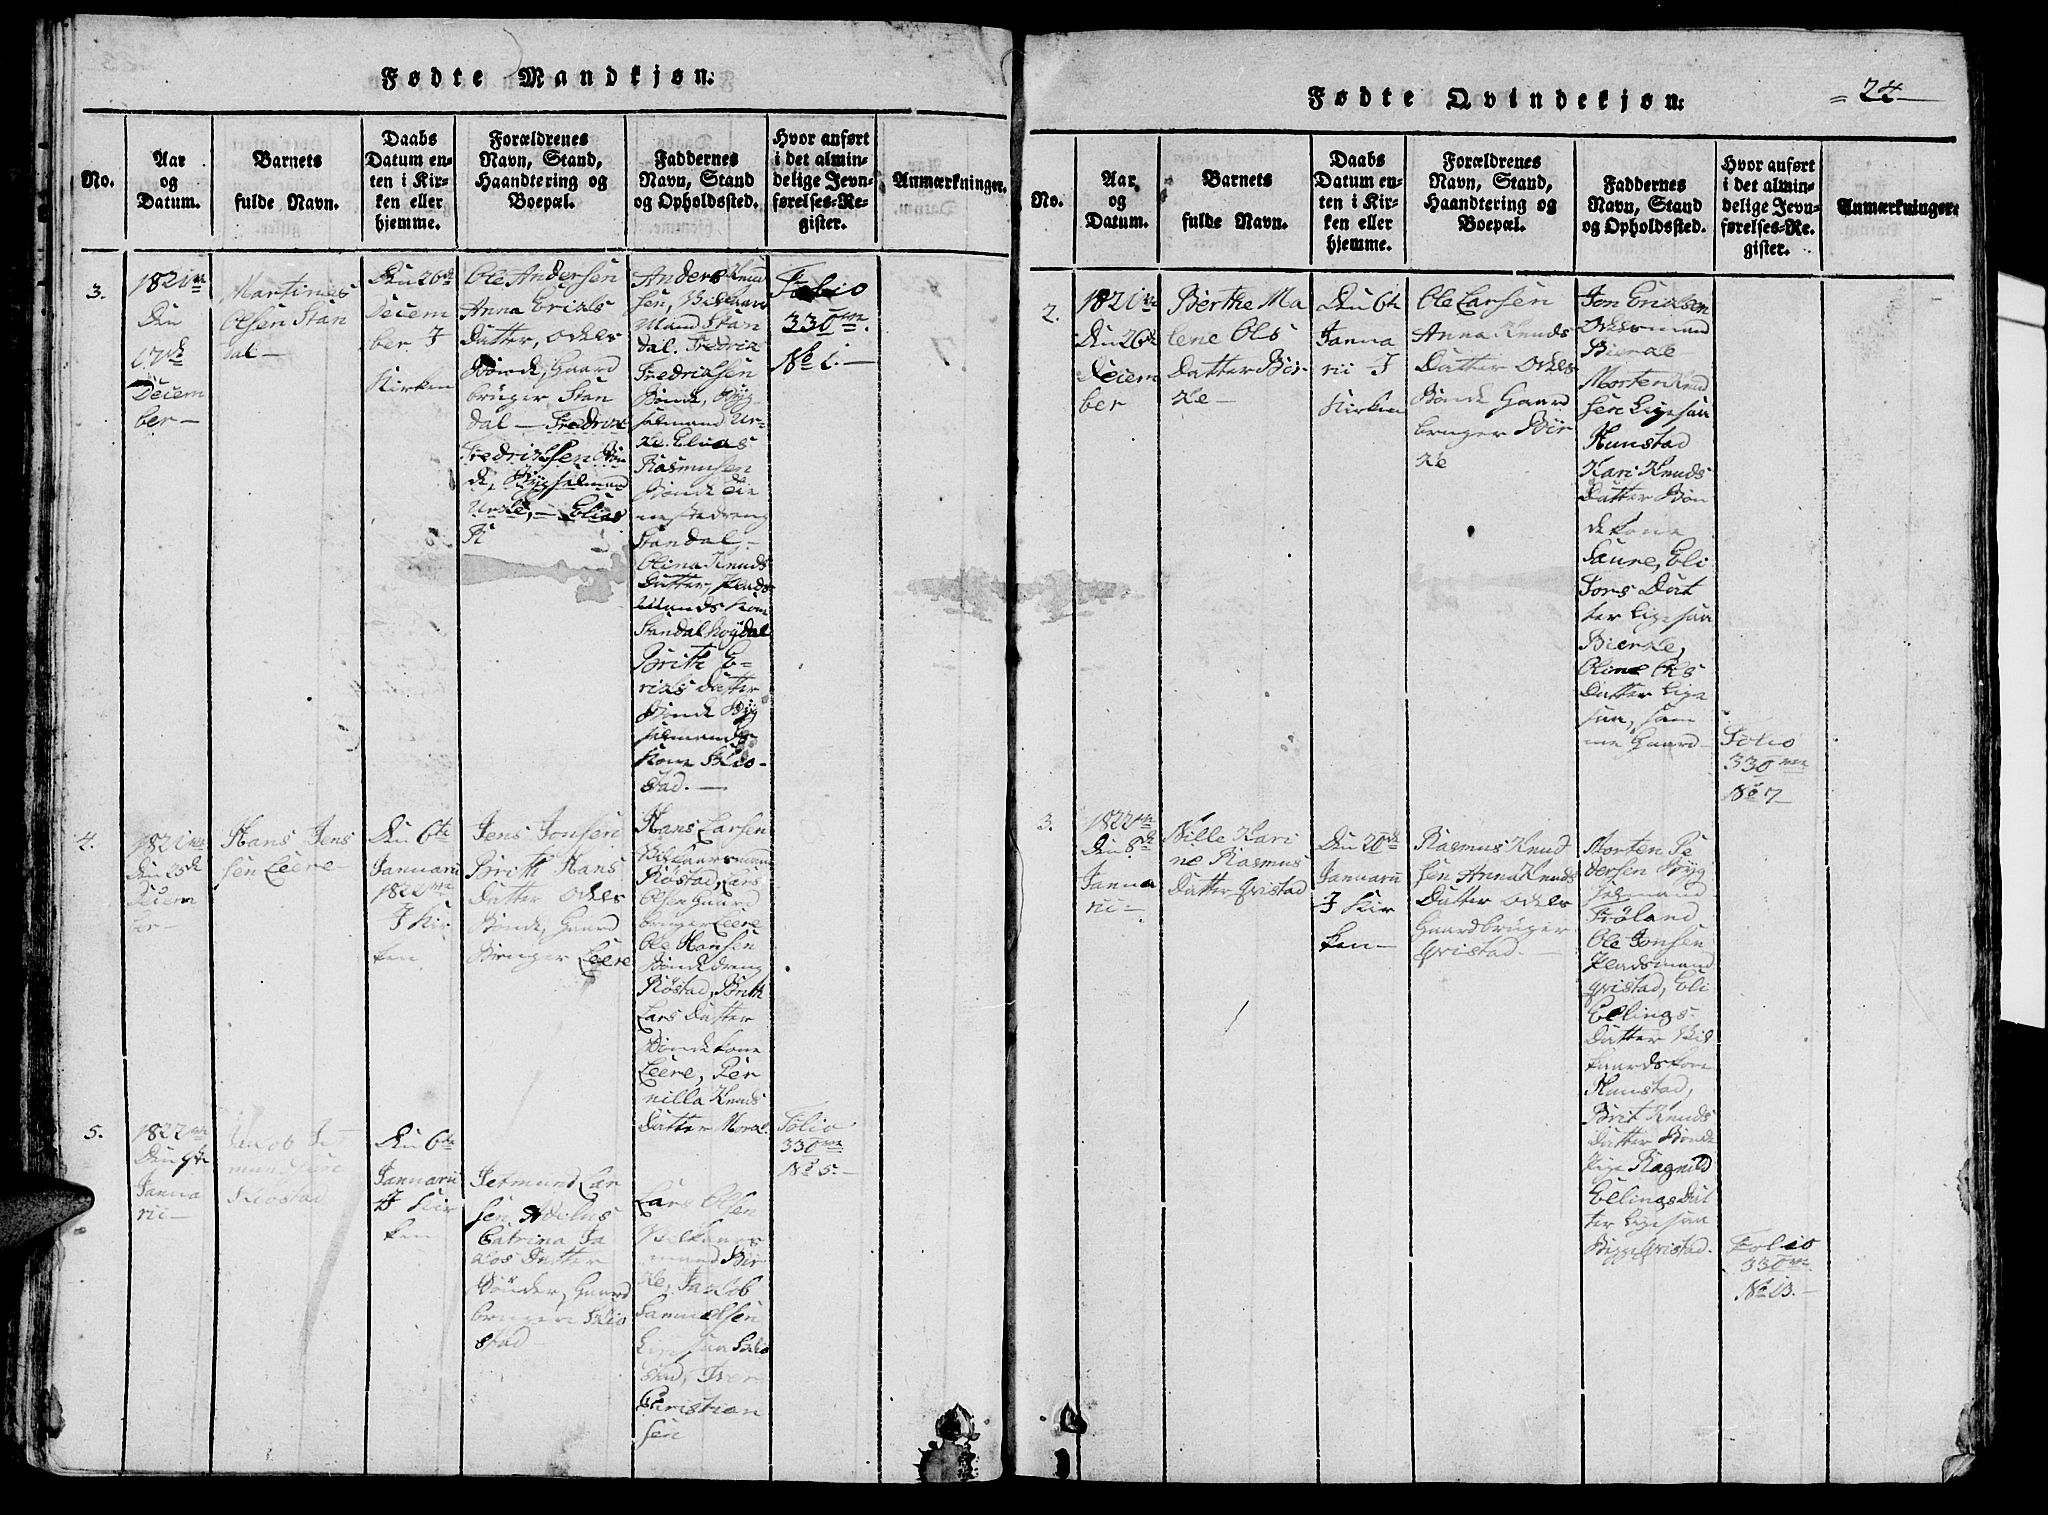 Fødte Mandkjøn.
No.
Aar
og
Datum.
Barnets
fulde Navn.
Daabs
Datum en-
ten i Kir-
ken eller
hjemme.
Forældrenes
Navn, Stand,
Haandtering og
Boepæl.
Faddernes
Navn, Stand
og Opholdsted.
Hvor anført
i det almin-
delige Jevn-
førelses-Re-
gister.
Anmærkninger.
3.
1821
Den
17de
Deiem
ber—
Martinus
Olsen Stan
dal—
Den 26de
Deiem
ber I
Kirken
Ole Andersen
Anna Erichs
Datter, Odels
Bønde, Gaard
bruger Stan
dal — Fredrik
Fredriksen Bøn
de, Bygselmand
Urke, — Elias
R
Anders Knud
sen,
Mand Stan
dal. Fredrik
Fredriksen
Bønde, Byg-
selmand Ur-
ke. Elias
Rasmusen
Bonde
Standal,—
Olina Knuds
Datter, Plads
Mands Kone
Standal
Brith E-
richs Datter
Bonde Byg
selmands
Kone Skio-
stad. —
Folio
330
No 1.—
4.
1821
Den 23de
Deiem
ber—
Hans Jens
sen Leere—
Den 6te
Januarii
1822
I Kir
ken
Jens Jonsen
Brith Hans
Datter Odels
Bønde, Gaard
Bruger Leere
Hans Larsen
Røstad, Lars
Olsen Gaard
bruger Leere
Ole Hansen
Bondedreng
Røstad, Brith
Lars Datter
Bondekone
Leere, Per
nilla Knuds
Datter
5.
1822
Den
Janua
rii—
Jacob Jet
mundsen
Skiostad
Den 6te
Januarii
I Kir
ken
Jetmund Lar
sen
Catrina Ja
cobs Datter
Bønder, Gaard
bruger Skio
stad
Lars Olsen
mand Bir
ke, Jacob
Samuelsen
Ligesaa Skio
stad, Iver
Christian
sen
Folio
330
No 5.—
Fødte Qvindekjøn.
24
No.
Aar
og
Datum.
Barnets
fulde Navn.
Daabs
Datum en-
ten i Kir-
ken eller
hjemme.
Forældrenes
Navn, Stand,
Haandtering og
Boepæl.
Faddernes
Navn, Stand
og Opholdsted.
Hvor anført
i det almin-
delige Jevn-
førelses-Re-
gister.
Anmærkninger.
2.
1821
Den 26de
Deiem
ber
Berthe Ma
lene Ols
Datter Bir
ke—
Den 6te
Janua
rii I
Kirken
Ole Larsen
Anna Knuds
Datter Odels
Bønde Gaard
bruger Bir
ke
Jon Ericksen
Odelsmand
Bierke
Morten Knud
sen Ligesaa
Hunstad
Kari Knuds
Datter Bon
dekone
Saure, Eli
Jors Dat
ter Ligesaa
Bierke,
Oline Ols
Datter Lige
saa, sam
me Gaard—
Folio
330
No 7—
3.
1822
Den 8de
Janua
rii—
Nille Kari
ne Rasmus
Datter Qvistad
Den 20de
Januarii
I Kir
ken—
Rasmus Knud
sen Anna Knuds
Datter Odels
Gaardbruger
Qvistad.—
Morten Pe
dersen Byg
selmand
Frøland
Ole Jonsen
Pladsmand
Qvistad, Eli
Ellings
Datter
Hunstad,
Brit Knuds
Datter Bonde
Pige Ragnild
Ellings Dat
ter Ligesaa
Begge Qvistad.
Folio
330
No 13.—